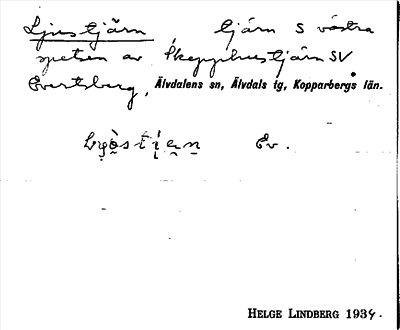 Ljustjärn, tjärn S västra
spetsen av Skepphustjärn SV
Evertsberg, Älvdalens sn, Älvdals tg, Kopparbergs län.
Ev.
HELGE LINDBERG 1934.